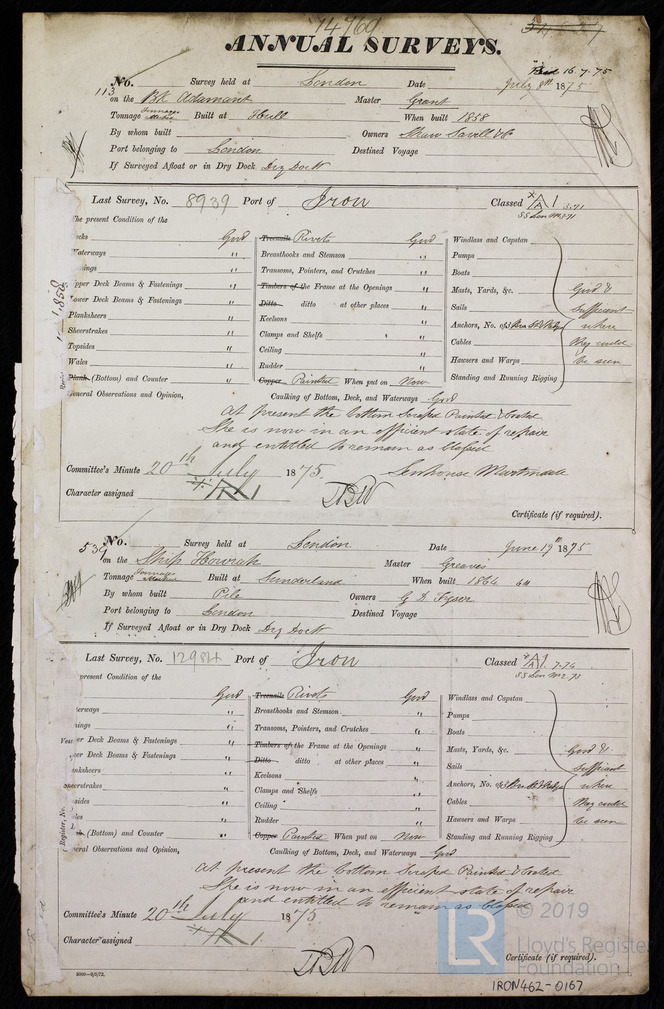 14760
ANNUAL SURVEYS.
16.7.75
No. Survey held at London Date July 8th 1875
113 on the Bk Adamant Master Grant
Tonnage Built at Hull When built 1858
By whom built Owners Shaw Savill & Co
Port belonging to London Destined Voyage
If Surveyed Afloat or in Dry Dock Dry Dock
Last Survey, No. 8939 Port of Iron Classed A 1 5.71
SS Lon No 3.71
The present Condition of the
Decks Good Treenails Rivets Good Windlass and Capstan
Waterways " Breasthooks and Stemson " Pumps
" Transoms, Pointers, and Crutches " Boats
Upper Deck Beams & Fastenings " Timbers of the Frame at the Openings " Masts, Yards, &c. Good &
Lower Deck Beams & Fastenings " Ditto ditto at other places " Sails sufficient
Planksheers " Keelsons " Anchors, No. of where
Sheerstrakes " Clamps and Shelfs " Cables they could
Topsides " Ceiling " Hawsers and Warps be seen
Wales " Rudder " Standing and Running Rigging
Plank (Bottom) and Counter " Copper Painted When put on Now
General Observations and Opinion, Caulking of Bottom, Deck, and Waterways Good
At present the bottom Scraped Painted & Coated
She is now in an efficient state of repair
and entitled to remain as Classed
Committee's Minute 20th July 1875. Senhouse Martindale
Character assigned A 1
Certificate (if required).
No. Survey held at London Date June 19th 1875
539 on the Ship Howrah Master Greaves
Tonnage Built at Sunderland When built 1864 6m
By whom built Pile Owners G D Tyser
Port belonging to London Destined Voyage
If Surveyed Afloat or in Dry Dock Dry Dock
Last Survey, No. 12984 Port of Iron Classed A 1 7.74
SS Lon No 2.73
present Condition of the
Good Treenails Rivets Good Windlass and Capstan
" Breasthooks and Stemson " Pumps
" Transoms, Pointers, and Crutches " Boats
Upper Deck Beams & Fastenings " Timbers of the Frame at the Openings " Masts, Yards, &c. Good &
Lower Deck Beams & Fastenings " Ditto ditto at other places " Sails Sufficient
Planksheers " Keelsons " Anchors, No. where
Sheerstrakes " Clamps and Shelfs " Cables they could
" Ceiling " Hawsers and Warps be seen
" Rudder " Standing and Running Rigging
(Bottom) and Counter " Copper Painted When put on Now
General Observations and Opinion, Caulking of Bottom, Deck, and Waterways Good
At present the bottom Scraped Painted & Coated
She is now in an efficient state of repair
and entitled to remain as Classed
Committee's Minute 20th July 1875
Character assigned A 1
Certificate (if required).
© 2019
LR
Lloyd's Register
Foundation
IRON462-0167